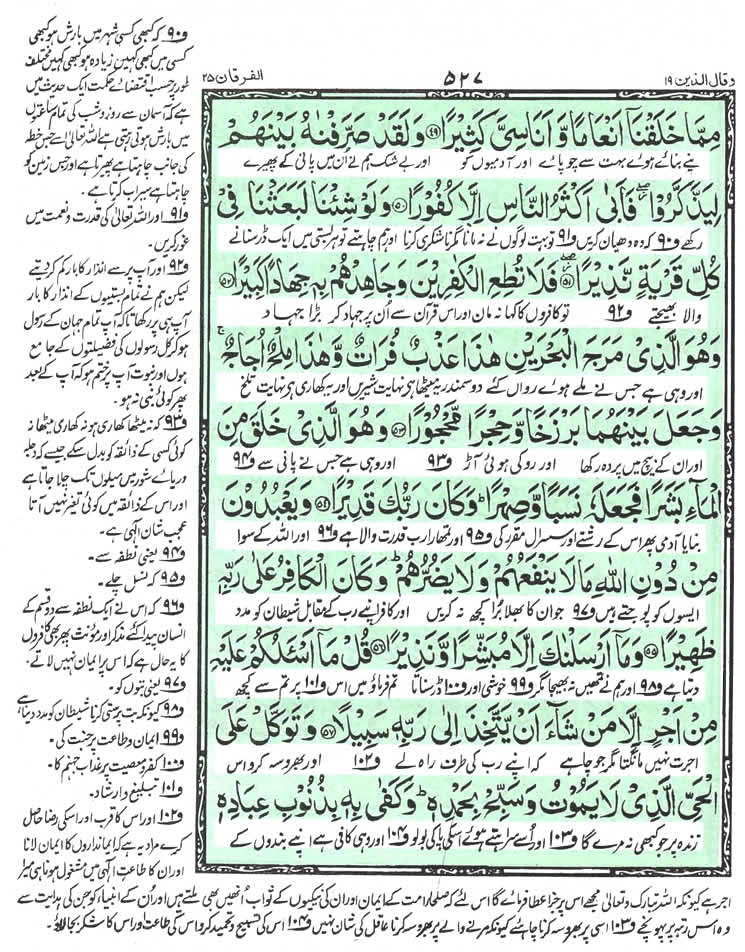 وقال الذين ١٩
٥٢٧
الفرقان ٢٥
مِمَّا خَلَقْنَآ اَنْعَامًا وَّاَنَاسِىَّ كَثِيْرًا ﴿٤٩﴾ وَلَقَدْ صَرَّفْنٰهُ بَيْنَهُمْ
اپنے بنائے ہوئے بہت سے چوپائے اور آدمیوں کو اور بے شک ہم نے ان میں پانی کے پھیرے
لِيَذَّكَّرُوْا ۖ فَاَبٰٓى اَكْثَرُ النَّاسِ اِلَّا كُفُوْرًا ﴿٥٠﴾ وَلَوْ شِئْنَا لَبَعَثْنَا فِىْ
رکھے ف٩٠ کہ وہ دھیان کریں ف٩١ تو بہت لوگوں نے نہ مانا مگر ناشکری کرنا اور ہم چاہتے تو ہر بستی میں ایک ڈر سنانے
كُلِّ قَرْيَةٍ نَّذِيْرًا ﴿٥١﴾ فَلَا تُطِعِ الْكٰفِرِيْنَ وَجَاهِدْهُمْ بِهٖ جِهَادًا كَبِيْرًا ﴿٥٢﴾
والا بھیجتے ف٩٢ تو کافروں کا کہا نہ مان اور اس قرآن سے ان پر جہاد کر بڑا جہاد
وَهُوَ الَّذِىْ مَرَجَ الْبَحْرَيْنِ هٰذَا عَذْبٌ فُرَاتٌ وَّهٰذَا مِلْحٌ اُجَاجٌ ۚ
اور وہی ہے جس نے ملے ہوئے رواں کئے دو سمندر یہ میٹھا ہے نہایت شیریں اور یہ کھاری ہے نہایت تلخ
وَجَعَلَ بَيْنَهُمَا بَرْزَخًا وَّحِجْرًا مَّحْجُوْرًا ﴿٥٣﴾ وَهُوَ الَّذِىْ خَلَقَ مِنَ
اور ان کے بیچ میں پردہ رکھا اور روکی ہوئی آڑ ف٩٣ اور وہی ہے جس نے پانی سے ف٩٤
الْمَآءِ بَشَرًا فَجَعَلَهٗ نَسَبًا وَّصِهْرًا ؕ وَكَانَ رَبُّكَ قَدِيْرًا ﴿٥٤﴾ وَيَعْبُدُوْنَ
بنایا آدمی پھر اس کے رشتے اور سسرال مقرر کی ف٩٥ اور تمھارا رب قدرت والا ہے ف٩٦ اور اللہ کے سوا
مِنْ دُوْنِ اللّٰهِ مَا لَا يَنْفَعُهُمْ وَلَا يَضُرُّهُمْ ؕ وَكَانَ الْكَافِرُ عَلٰى رَبِّهٖ
ایسوں کو پوجتے ہیں ف٩٧ جو ان کا بھلا برا کچھ نہ کریں اور کافر اپنے رب کے مقابل شیطان کو مدد
ظَهِيْرًا ﴿٥٥﴾ وَمَآ اَرْسَلْنٰكَ اِلَّا مُبَشِّرًا وَّنَذِيْرًا ﴿٥٦﴾ قُلْ مَآ اَسْـَٔلُكُمْ عَلَيْهِ
دیتا ہے ف٩٨ اور ہم نے تمھیں نہ بھیجا مگر ف٩٩ خوشی اور ف١٠٠ ڈر سناتا تم فرماؤ میں اس ف١٠١ پر تم سے کچھ
مِنْ اَجْرٍ اِلَّا مَنْ شَآءَ اَنْ يَّتَّخِذَ اِلٰى رَبِّهٖ سَبِيْلًا ﴿٥٧﴾ وَتَوَكَّلْ عَلَى
اجرت نہیں مانگتا مگر جو چاہے کہ اپنے رب کی طرف راہ لے ف١٠٢ اور بھروسہ کرو اس
الْحَىِّ الَّذِىْ لَا يَمُوْتُ وَسَبِّحْ بِحَمْدِهٖ ؕ وَكَفٰى بِهٖ بِذُنُوْبِ عِبَادِهٖ
زندہ پر جو کبھی نہ مرے گا ف١٠٣ اور اسے سراہتے ہوئے اسکی پاکی بولو ف١٠٤ اور وہی کافی ہے اپنے بندوں کے
ف٩٠ کہ کبھی کسی شہر میں بارش ہو کبھی
کسی میں کبھی کہیں زیادہ ہو کبھی کہیں مختلف
طور پر حسب اقتضائے حکمت ایک حدیث میں
ہے کہ آسمان سے روز و شب کی تمام ساعتوں
میں بارش ہوتی رہتی ہے اللہ تعالیٰ اسے جس خطہ
کی جانب چاہتا ہے پھیرتا ہے اور جس زمین کو
چاہتا ہے سیراب کرتا ہے۔
ف٩١ اور اللہ تعالیٰ کی قدرت و نعمت میں
غور کریں۔
ف٩٢ اور آپ پر سے انذار کا بار کم کر دیتے
لیکن ہم نے تمام بستیوں کے انذار کا بار
آپ ہی پر رکھا تاکہ آپ تمام جہان کے رسول
ہو کر کل رسولوں کی فضیلتوں کے جامع
ہوں اور نبوت آپ پر ختم ہو کہ آپ کے بعد
پھر کوئی نبی نہ ہو۔
ف٩٣ کہ نہ میٹھا کھاری ہو نہ کھاری میٹھا نہ
کوئی کسی کے ذائقہ کو بدل سکے جیسے کہ دجلہ
دریائے شور میں میلوں تک چلا جاتا ہے
اور اس کے ذائقہ میں کوئی تغیر نہیں آتا
عجب شان الٰہی ہے۔
ف٩٤ یعنی نطفہ سے۔
ف٩٥ کہ نسل چلے۔
ف٩٦ کہ اس نے ایک نطفہ سے دو قسم کے
انسان پیدا کئے مذکر اور مؤنث پھر بھی کافروں
کا یہ حال ہے کہ اس پر ایمان نہیں لاتے۔
ف٩٧ یعنی بتوں کو۔
ف٩٨ کیونکہ بت پرستی کرنا شیطان کو مدد دینا ہے
ف٩٩ ایمان و طاعت پر جنت کی۔
ف١٠٠ کفر و معصیت پر عذاب جہنم کا۔
ف١٠١ تبلیغ و ارشاد۔
ف١٠٢ اور اس کا قرب اور اسکی رضا حاصل
کرے مراد یہ ہے کہ ایمانداروں کا ایمان لانا
اور ان کا طاعت الٰہی میں مشغول ہونا ہی میرا
اجر ہے کیونکہ اللہ تبارک و تعالیٰ مجھے اس پر جزا عطا فرمائے گا اس لئے کہ صلحاء امت کے ایمان اور ان کی نیکیوں کے ثواب انھیں بھی ملتے ہیں اور ان کے انبیاء کو جن کی ہدایت سے
وہ اس رتبہ پر پہونچے ف١٠٣ اسی پر بھروسہ کرنا چاہئے کیونکہ مرنے والے پر بھروسہ کرنا عاقل کی شان نہیں ف١٠٤ اس کی تسبیح و تحمید کرو اس کی طاعت اور اس کا شکر بجا لاؤ۔